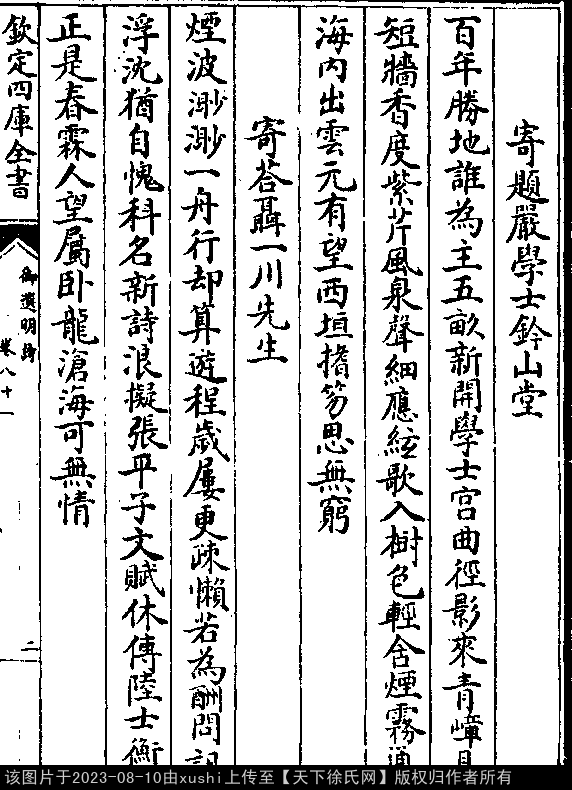 寄題嚴學士鈐山堂
百年勝地誰為主五畝新開學士宮曲徑影來青嶂
短牆香度紫芹風泉聲細應絃歌入樹色輕含煙霧
海内出雲元有望西垣搘笏思無窮
寄荅聶一川先生
煙波渺渺一舟行却算遊程歲屢更疎懶若為酬問
浮沈猶自愧科名新詩浪擬張平子文賦休傳陸士衡
正是春霖人望屬卧龍滄海可無情
欽定四庫全書
御選明詩
卷八十一
二
该图片于2023-08-10由xushi上传至【天下徐氏网】版权归作者所有